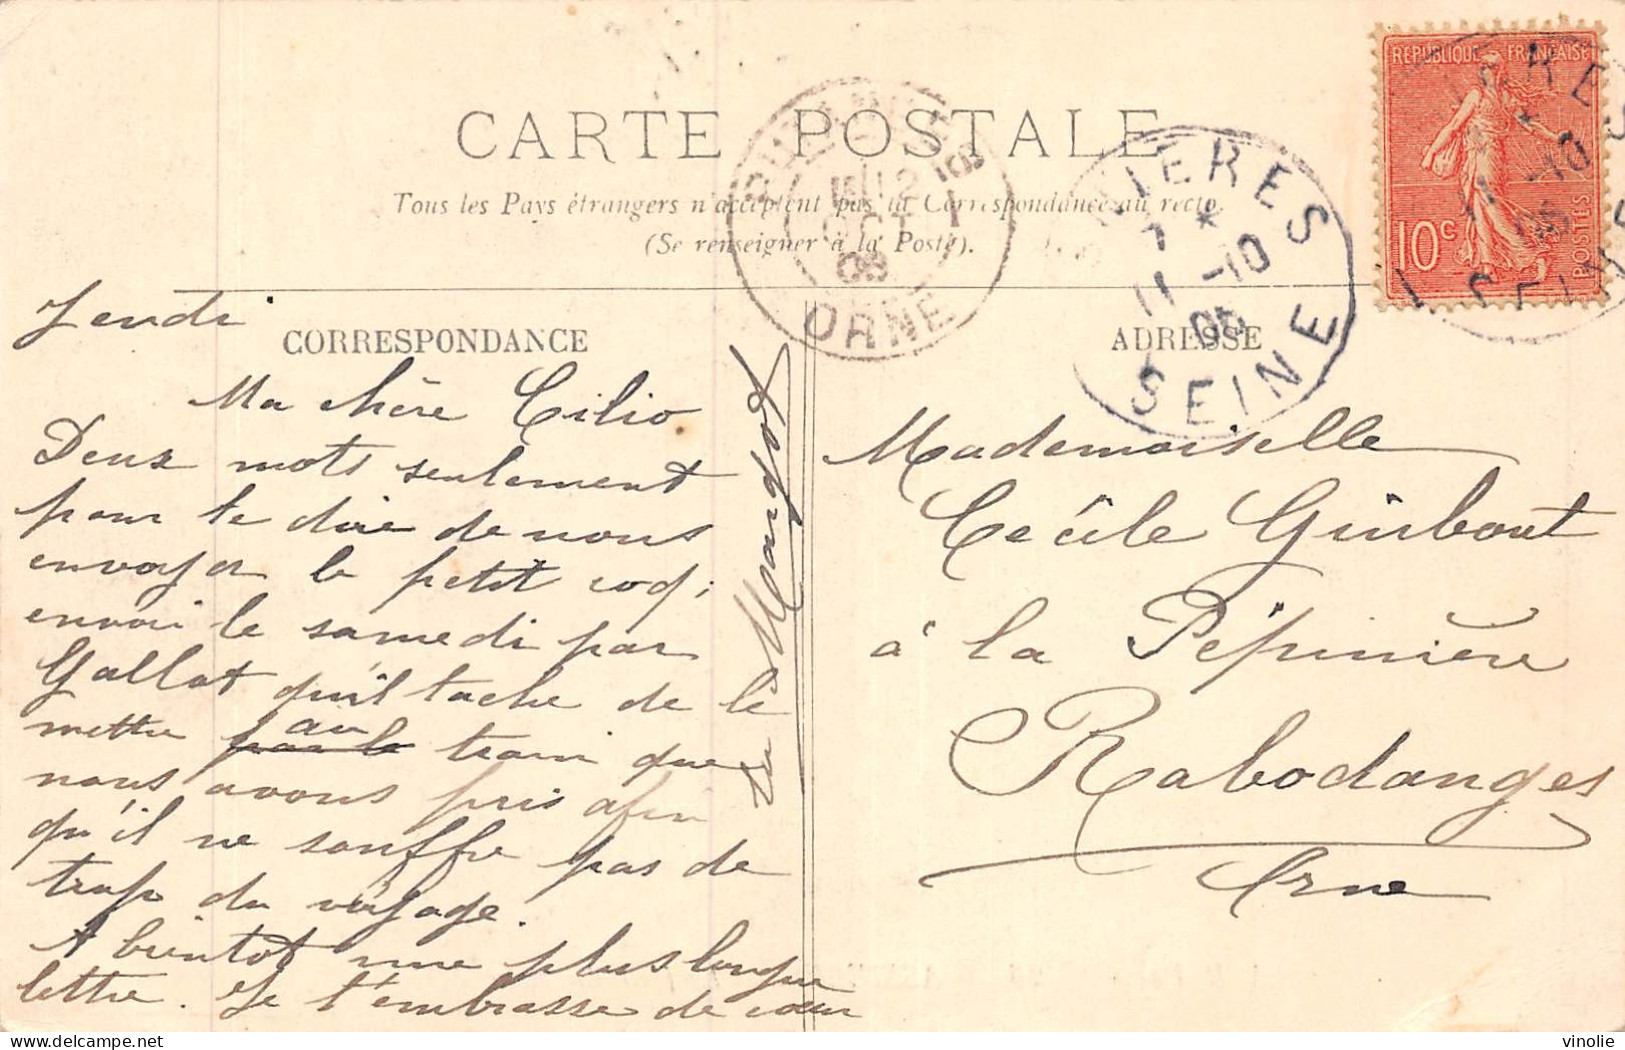 CARTE POSTALE
Tous les Pays étrangers n'acceptent pas la Correspondance au recto.
(Se renseigner à la Poste).
CORRESPONDANCE
ADRESSE
REPUBLIQUE FRANÇAISE
10c
POSTES
12
OCT
05
ORNE
IERES
7 *
11 -10
05
SEINE
Jeudi
Ma chère Cilio
Deux mots seulement
pour te dire de nous
envoyer le petit coq ;
envoi le samedi par
Gallot qu'il tache de le
mettre par le au train que
nous avons pris afin
qu'il ne souffre pas de
trop du voyage.
A bientot une plus longue
lettre. Je t'embrasse de cœur
Margot
Mademoiselle
Cécile Guibout
à la Pépinière
Rabodanges
Orne
vinolie